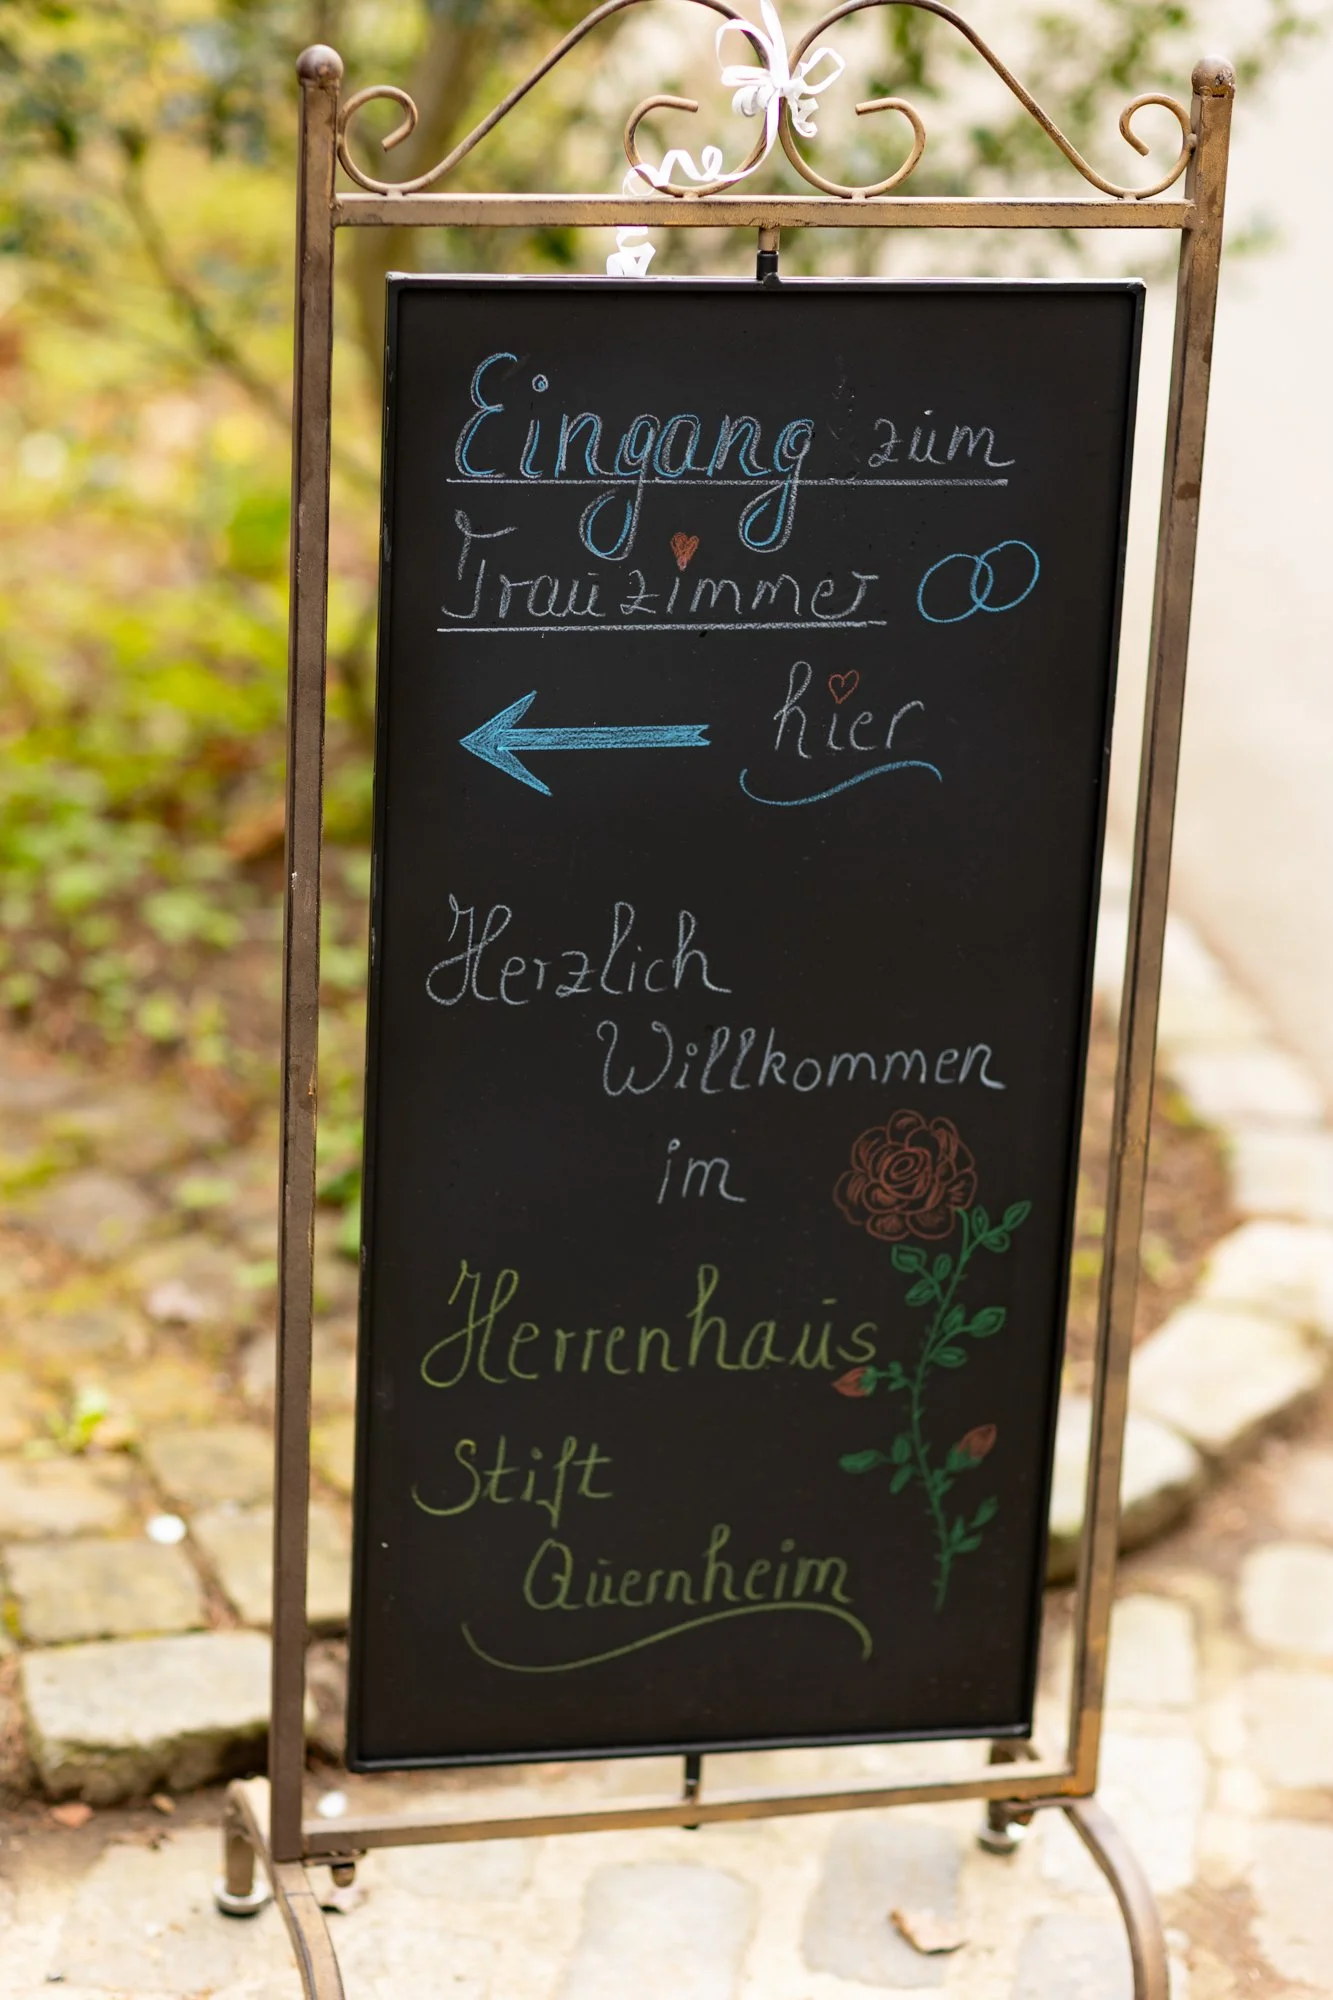 Eingang zum
Trauzimmer
hier
Herzlich
Willkommen
im
Herrenhaus
Stift
Quernheim